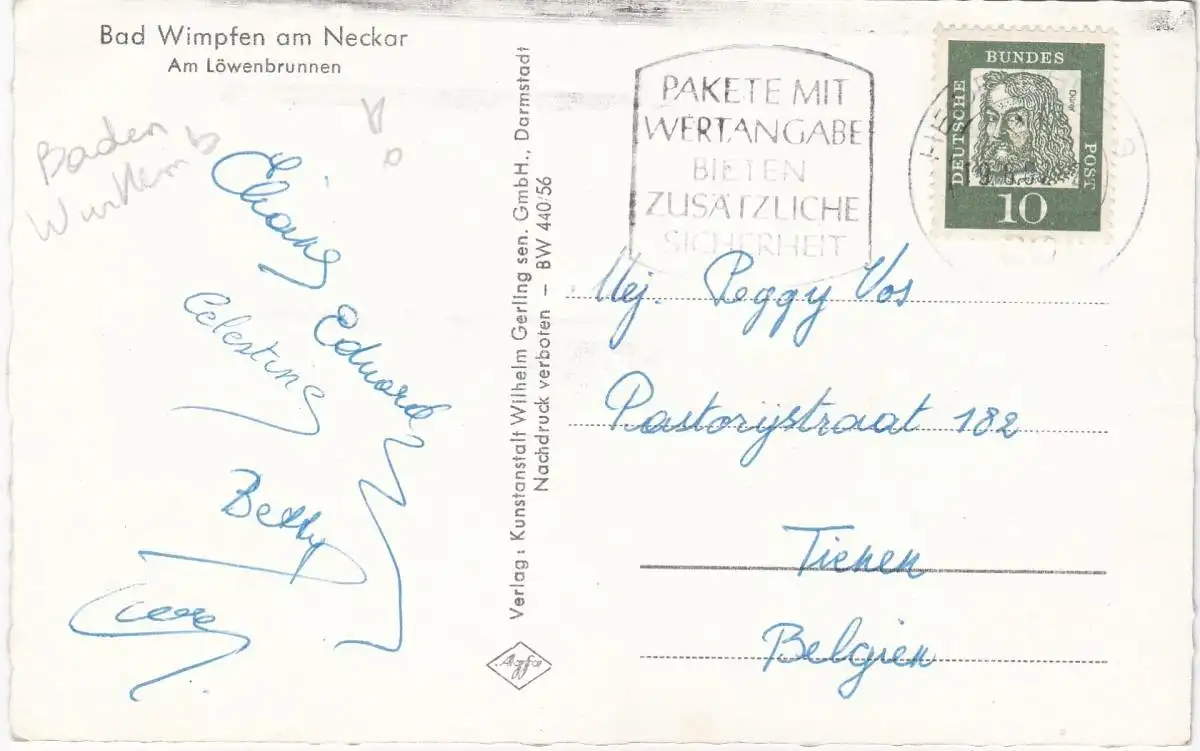 Bad Wimpfen am Neckar
Am Löwenbrunnen
Baden
Eduard
Celestine
Betty
Verlag: Kunstanstalt Wilhelm Gerling sen. GmbH., Darmstadt
Nachdruck verboten – BW 440/56
Agfa
PAKETE MIT
WERTANGABE
BIETEN
ZUSÄTZLICHE
SICHERHEIT
DEUTSCHE
BUNDES
POST
Dürer
10
Mej. Peggy Vos
Pastorijstraat 182
Tienen
Belgien